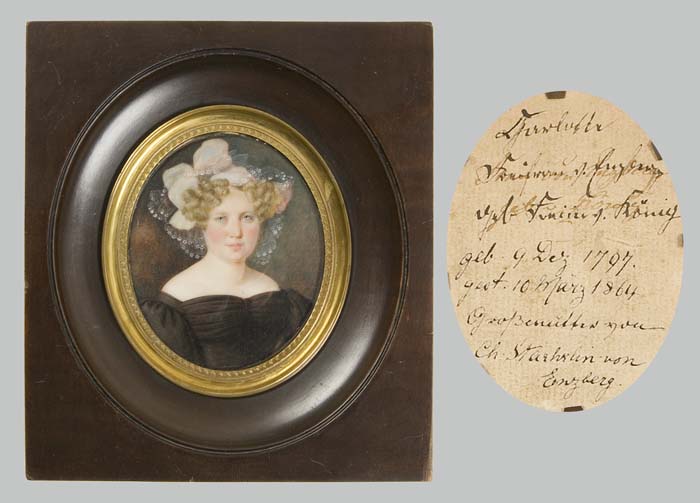 Charlotte
Freifrau v. Enzberg
geb. Freiin v. König
geb. 9 Dez 1797.
gest. 10 März 1864
Großmutter von
Ch. Staehelin von
Enzberg.